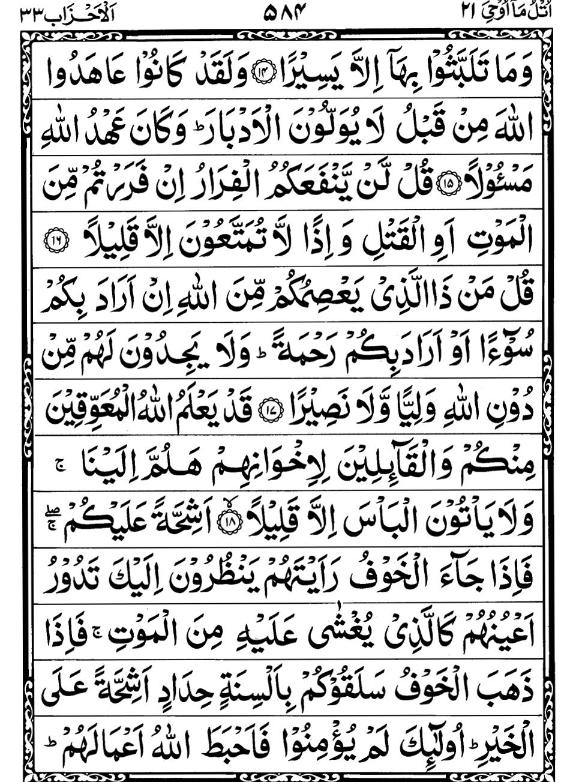 اُتْلُ مَآ اُوْحِيَ ٢١ ٥٨٤ اَلْاَحْزَاب ٣٣
وَمَا تَلَبَّثُوْا بِهَآ اِلَّا يَسِيْرًا ۝١٤ وَلَقَدْ كَانُوْا عَاهَدُوا
اللّٰهَ مِنْ قَبْلُ لَا يُوَلُّوْنَ الْاَدْبَارَ ؕ وَكَانَ عَهْدُ اللّٰهِ
مَسْـُٔوْلًا ۝١٥ قُلْ لَّنْ يَّنْفَعَكُمُ الْفِرَارُ اِنْ فَرَرْتُمْ مِّنَ
الْمَوْتِ اَوِ الْقَتْلِ وَاِذًا لَّا تُمَتَّعُوْنَ اِلَّا قَلِيْلًا ۝١٦
قُلْ مَنْ ذَا الَّذِيْ يَعْصِمُكُمْ مِّنَ اللّٰهِ اِنْ اَرَادَ بِكُمْ
سُوْٓءًا اَوْ اَرَادَ بِكُمْ رَحْمَةً ؕ وَلَا يَجِدُوْنَ لَهُمْ مِّنْ
دُوْنِ اللّٰهِ وَلِيًّا وَّلَا نَصِيْرًا ۝١٧ قَدْ يَعْلَمُ اللّٰهُ الْمُعَوِّقِيْنَ
مِنْكُمْ وَالْقَآىِٕلِيْنَ لِاِخْوَانِهِمْ هَلُمَّ اِلَيْنَا ۚ
وَلَا يَاْتُوْنَ الْبَاْسَ اِلَّا قَلِيْلًا ۝١٨ۙ اَشِحَّةً عَلَيْكُمْ ۖۚ
فَاِذَا جَآءَ الْخَوْفُ رَاَيْتَهُمْ يَنْظُرُوْنَ اِلَيْكَ تَدُوْرُ
اَعْيُنُهُمْ كَالَّذِيْ يُغْشٰى عَلَيْهِ مِنَ الْمَوْتِ ۚ فَاِذَا
ذَهَبَ الْخَوْفُ سَلَقُوْكُمْ بِاَلْسِنَةٍ حِدَادٍ اَشِحَّةً عَلَى
الْخَيْرِ ؕ اُولٰٓىِٕكَ لَمْ يُؤْمِنُوْا فَاَحْبَطَ اللّٰهُ اَعْمَالَهُمْ ؕ